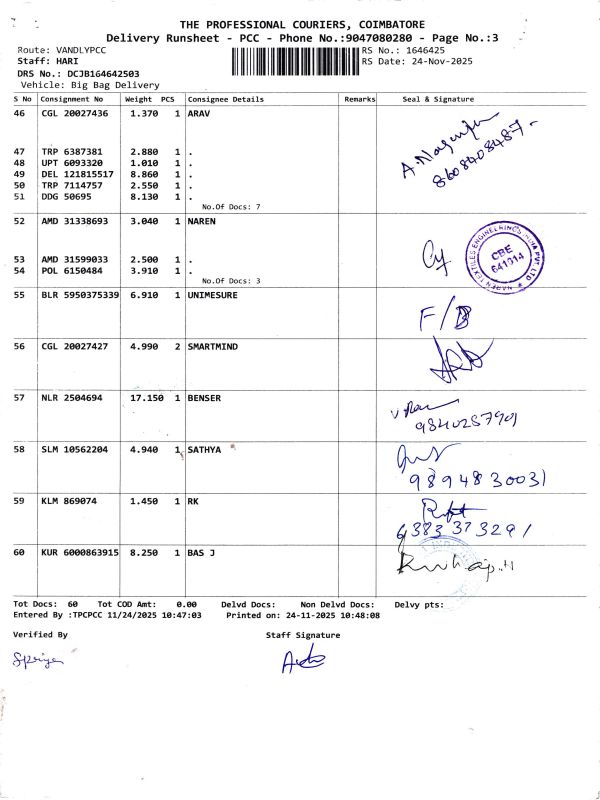 THE PROFESSIONAL COURIERS, COIMBATORE
Delivery Runsheet - PCC - Phone No.:9047080280 - Page No.:3
Route: VANDLYPCC
RS No.: 1646425
Staff: HARI
RS Date: 24-Nov-2025
DRS No.: DCJB164642503
Vehicle: Big Bag Delivery
S No Consignment No Weight PCS Consignee Details Remarks Seal & Signature
46 CGL 20027436 1.370 1 ARAV
A. 
8608408487-
47 TRP 6387381 2.880 1 .
48 UPT 6093320 1.010 1 .
49 DEL 121815517 8.860 1 .
50 TRP 7114757 2.550 1 .
51 DDG 50695 8.130 1 .
No.Of Docs: 7
52 AMD 31338693 3.040 1 NAREN
CBE
641014
53 AMD 31599033 2.500 1 .
54 POL 6150484 3.910 1 .
No.Of Docs: 3
55 BLR 5950375339 6.910 1 UNIMESURE
56 CGL 20027427 4.990 2 SMARTMIND
57 NLR 2504694 17.150 1 BENSER
9840287901
58 SLM 10562204 4.940 1 SATHYA
9894830031
59 KLM 869074 1.450 1 RK
6383373291
60 KUR 6000863915 8.250 1 BAS J
Tot Docs: 60 Tot COD Amt: 0.00 Delvd Docs: Non Delvd Docs: Delvy pts:
Entered By :TPCPCC 11/24/2025 10:47:03 Printed on: 24-11-2025 10:48:08
Verified By Staff Signature